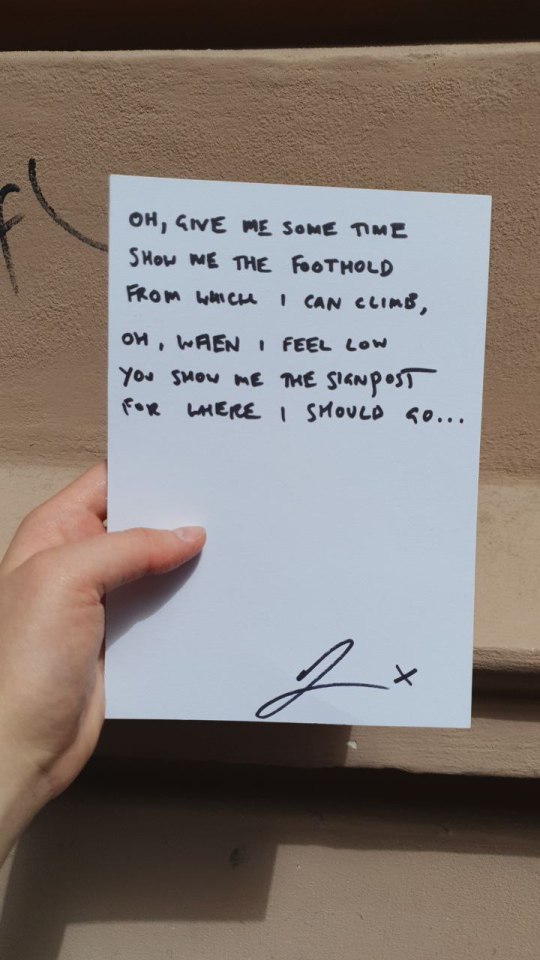 OH, GIVE ME SOME TIME
SHOW ME THE FOOTHOLD
FROM WHICH I CAN CLIMB,
OH, WHEN I FEEL LOW
YOU SHOW ME THE SIGNPOST
FOR WHERE I SHOULD GO...
x